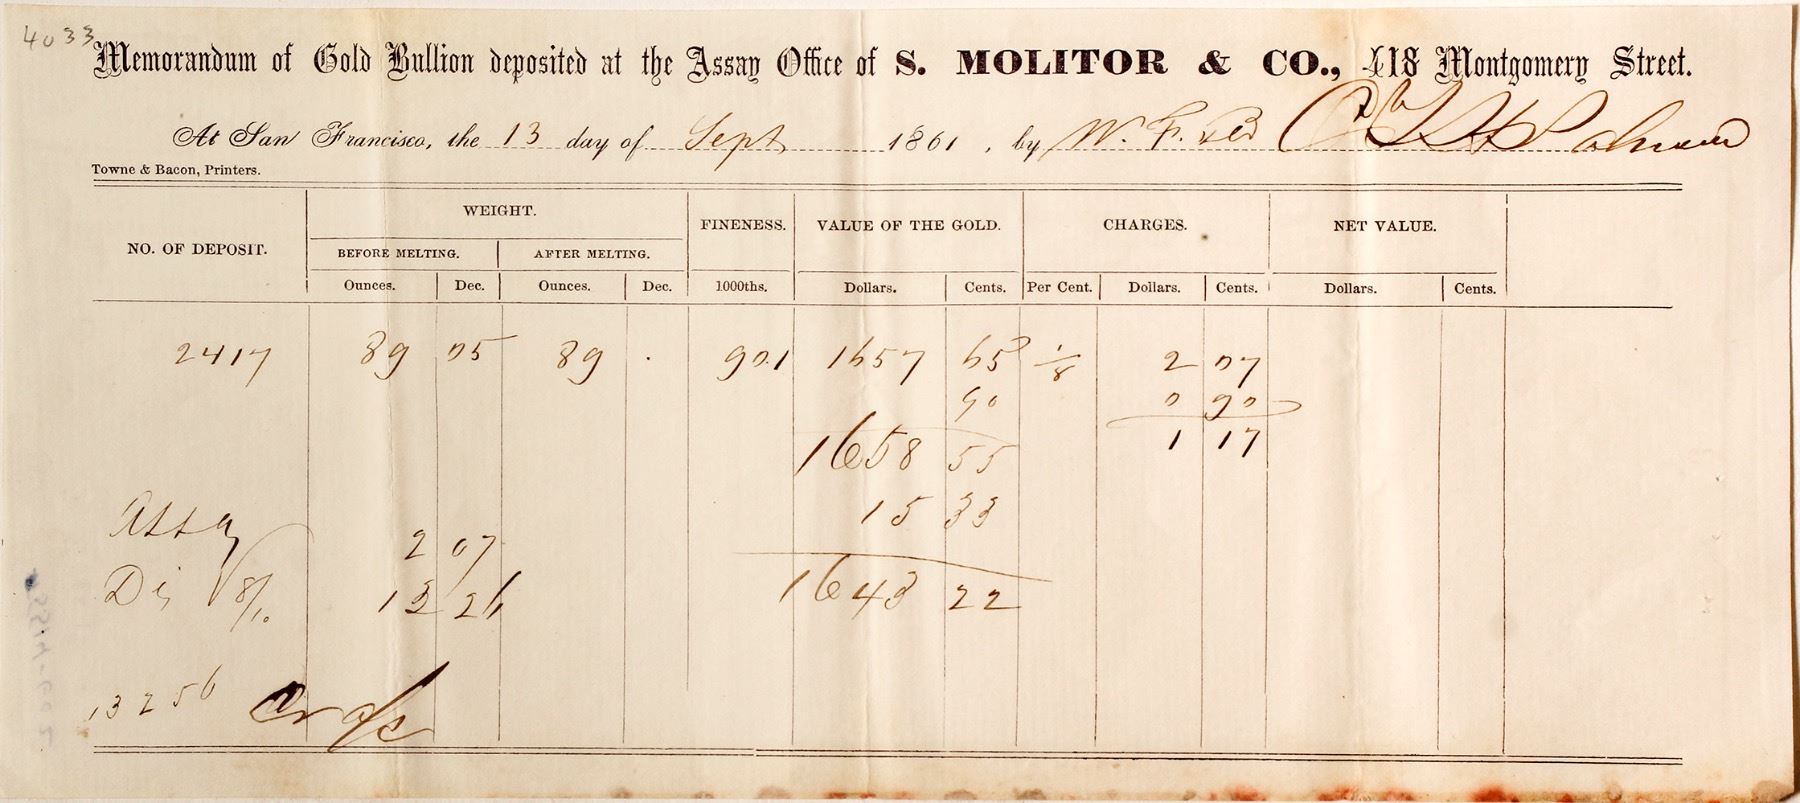 4033
Memorandum of Gold Bullion deposited at the Assay Office of S. MOLITOR & CO., 418 Montgomery Street.
At San Francisco, the 13 day of Sept 1861, by W. F. &Co
Towne & Bacon, Printers.
NO. OF DEPOSIT. WEIGHT. FINENESS. VALUE OF THE GOLD. CHARGES. NET VALUE.
BEFORE MELTING. AFTER MELTING.
Ounces. Dec. Ounces. Dec. 1000ths. Dollars. Cents. Per Cent. Dollars. Cents. Dollars. Cents.
2417 89 05 89 . 901 1657 65 1/8 2 07
90 0 90
1658 55 1 17
15 33
Assay 2 07
Dis 8/10 13 26 1643 22
13256